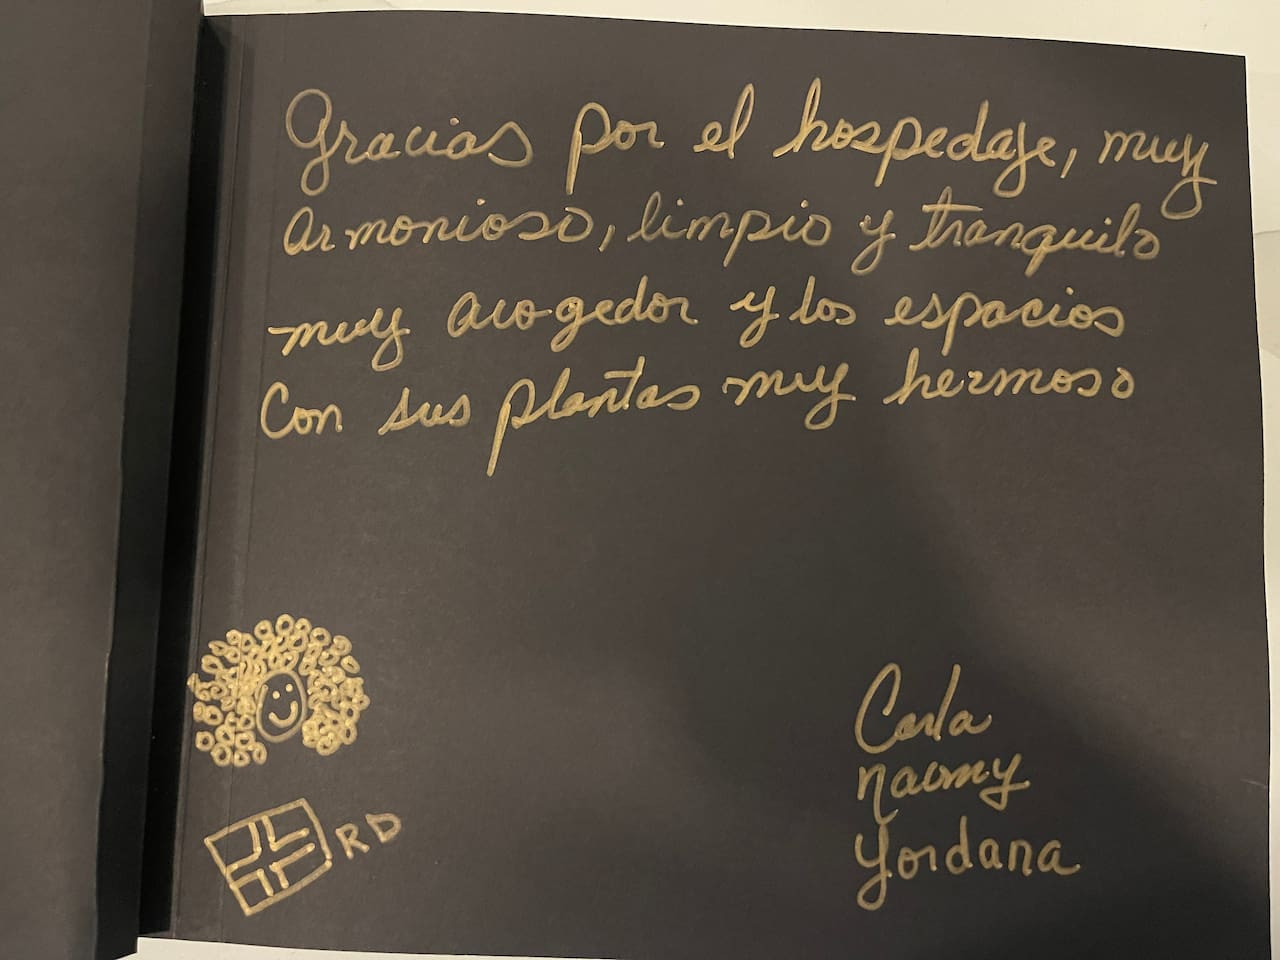 Gracias por el hospedaje, muy
armonioso, limpio y tranquilo
muy acogedor y los espacios
Con sus plantas muy hermoso
Carla
Naomy
Yordana
RD